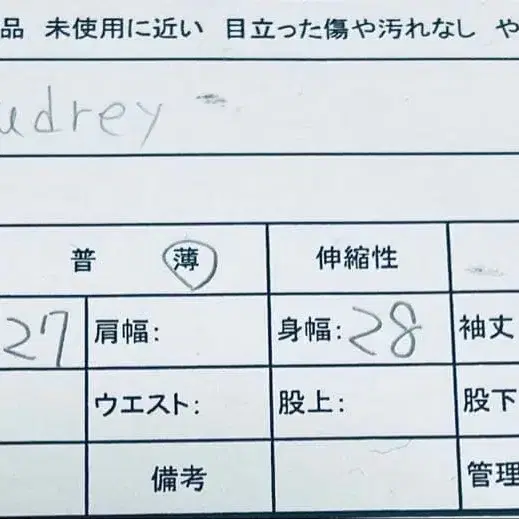 品 未使用に近い 目立った傷や汚れなし や
udrey
普 薄 伸縮性
27 肩幅: 身幅: 28 袖丈
ウエスト: 股上: 股下
備考 管理